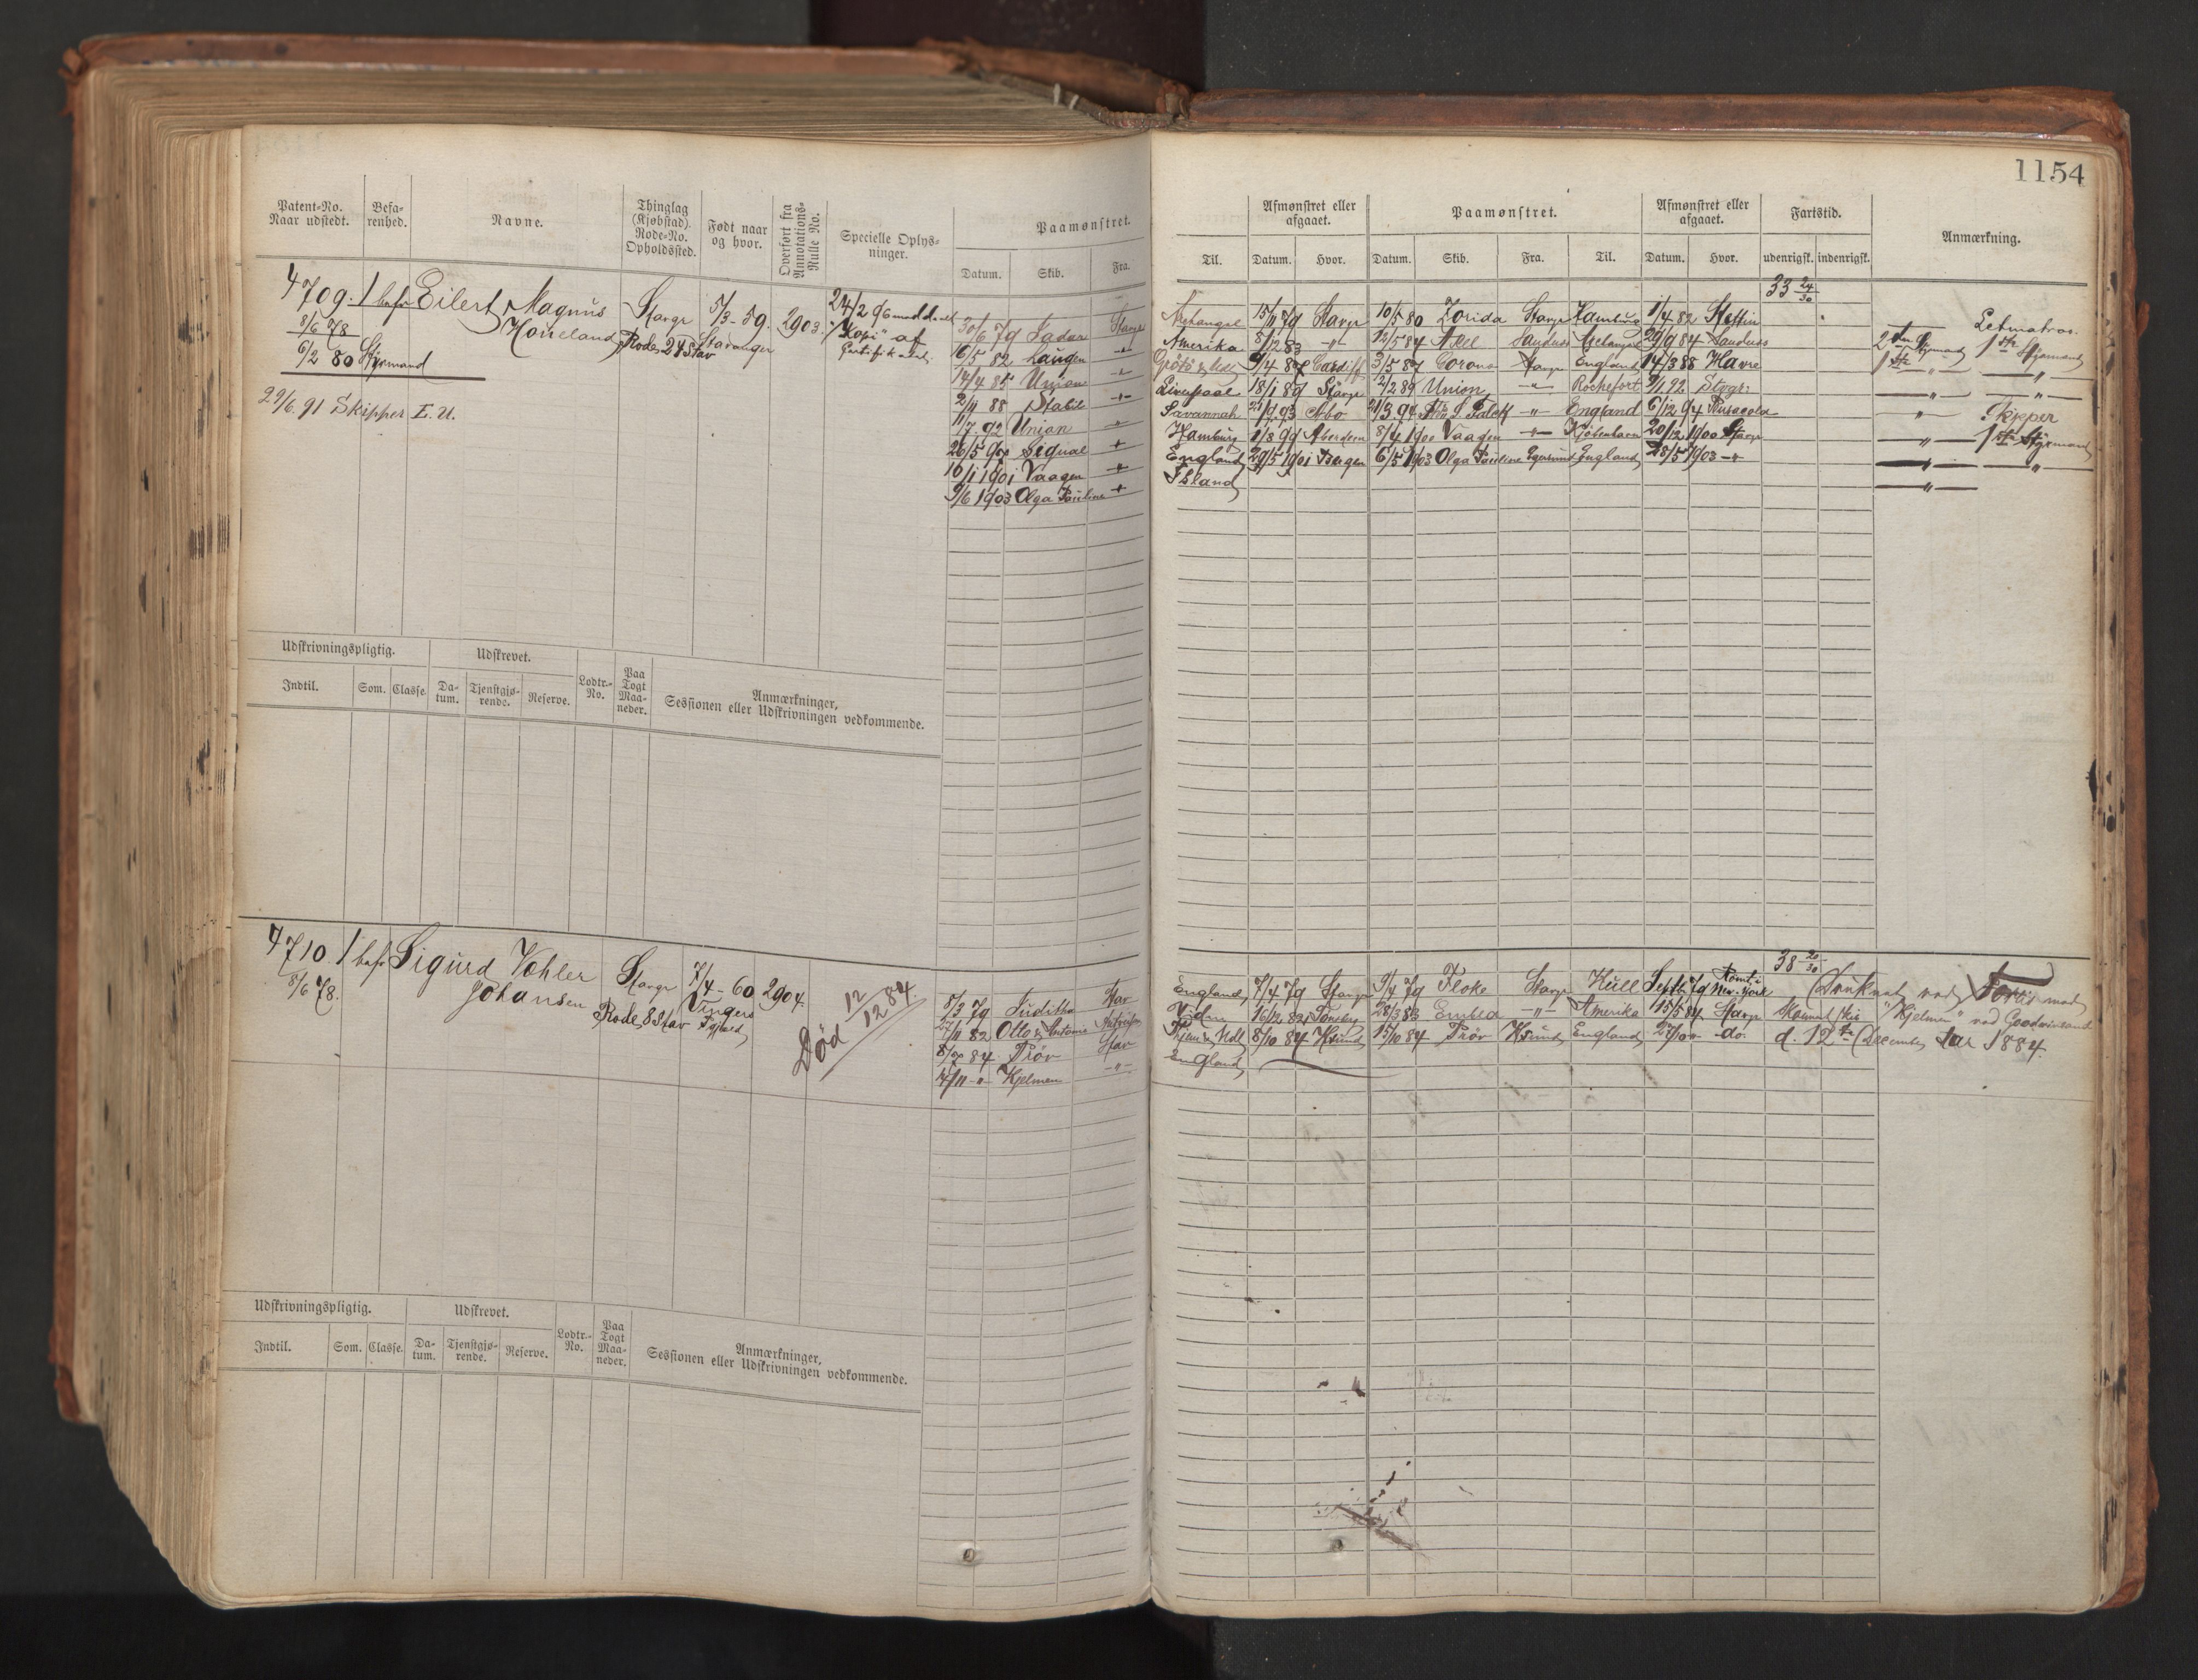 1154
Patent-No. Naar udstedt.
Befa-renhed.
Navne.
Thinglag (Kjøbstad). Rode-No. Opholdssted.
Født naar og hvor.
Overført fra Annotations-Rulle No.
Specielle Oplys-ninger.
Paamønstret.
Datum. Skib. Fra.
Til.
Afmønstret eller afgaaet.
Datum. Hvor.
Paamønstret.
Datum. Skib. Fra. Til.
Afmønstret eller afgaaet.
Datum. Hvor.
Fartstid.
udenrigsk. indenrigsk.
Anmærkning.
4709. 1 bef. Eilert Magnus Stavgr 5/3-59. 2903. 24/2 96 meddelt
8/6 78 Haueland Rode 24 Stav Stavanger "Kopi" af
6/2 80 Styrmand
29/6.91 Skipper E. U.
30/6 79 Jadar Stavgr
16/5 82 Laugen -"-
14/4 85 Union -"-
2/11 88 Stabil -"-
11/7.92 Union -"-
26/5 96
16/1 1901 Vaagen -"-
9/6 1903 Olga Pauline -"-
33 24/30
Archangel 15/11 79 Stavgr 10/5 80 Zorida Stavgr Hamburg 1/4 82 Stettin Letmatros.
Amerika 8/12 83 -"- 12/5 84 Axel 29/9 84 2den Styrmand 1ste Styrmand
9/4 87 Cardiff 3/5 87 Corona Stavgr England 14/3 88 Havre 1ste -"- -"-
Liverpool 18/1 89 Stavgr 12/2 89 Union -"- Rochefort 9/1 92 Stvgr: -"- -"-
Savannah Abo England 6/12 94 -"- Skipper
Hamburg 1/8 99 Aberdeen 8/4 1900 Vaagen -"- Kjöbenhavn 20/12 1900 Stavgr -"- 1ste Styrmand
England 29/5 1901 Bergen 6/5 1903 Olga Pauline Egersund England 28/5 1903 -"- -"- -"-
Island -"-
Udskrivningspligtig.
Indtil. Som. Classe.
Udskrevet.
Da-tum. Tjenstgjø-rende. Reserve.
Lodtr.-No.
Paa Togt Maa-neder.
Anmærkninger,
Sessionen eller Udskrivningen vedkommende.
4710. 1 bef. Sigurd Vøhler Stavgr 7/4-60 2904.
8/6 78. Johansen Rode 8 Stav
Død 12/12 84
8/3 79 Juditha Stav
27/11 82 Otto & Antonie
84 Pröv Stav
4/11 -"- Kjelmen -"-
38 20/30
England 7/4 79 Stavgr 9/4 79 Floke Stavgr Hull Septb 79 Römt i New-York
16/12 82 28/3 83 Embla -"- Amerika 15/5 84 Stavgr
8/10 84 Krsund 15/10 84 Pröv Krsund England do.
England
"Kjelmen" ved Goodwinsand
d. 12te December 1884.
Udskrivningspligtig.
Indtil. Som. Classe.
Udskrevet.
Da-tum. Tjenstgjø-rende. Reserve.
Lodtr.-No.
Paa Togt Maa-neder.
Anmærkninger,
Sessionen eller Udskrivningen vedkommende.